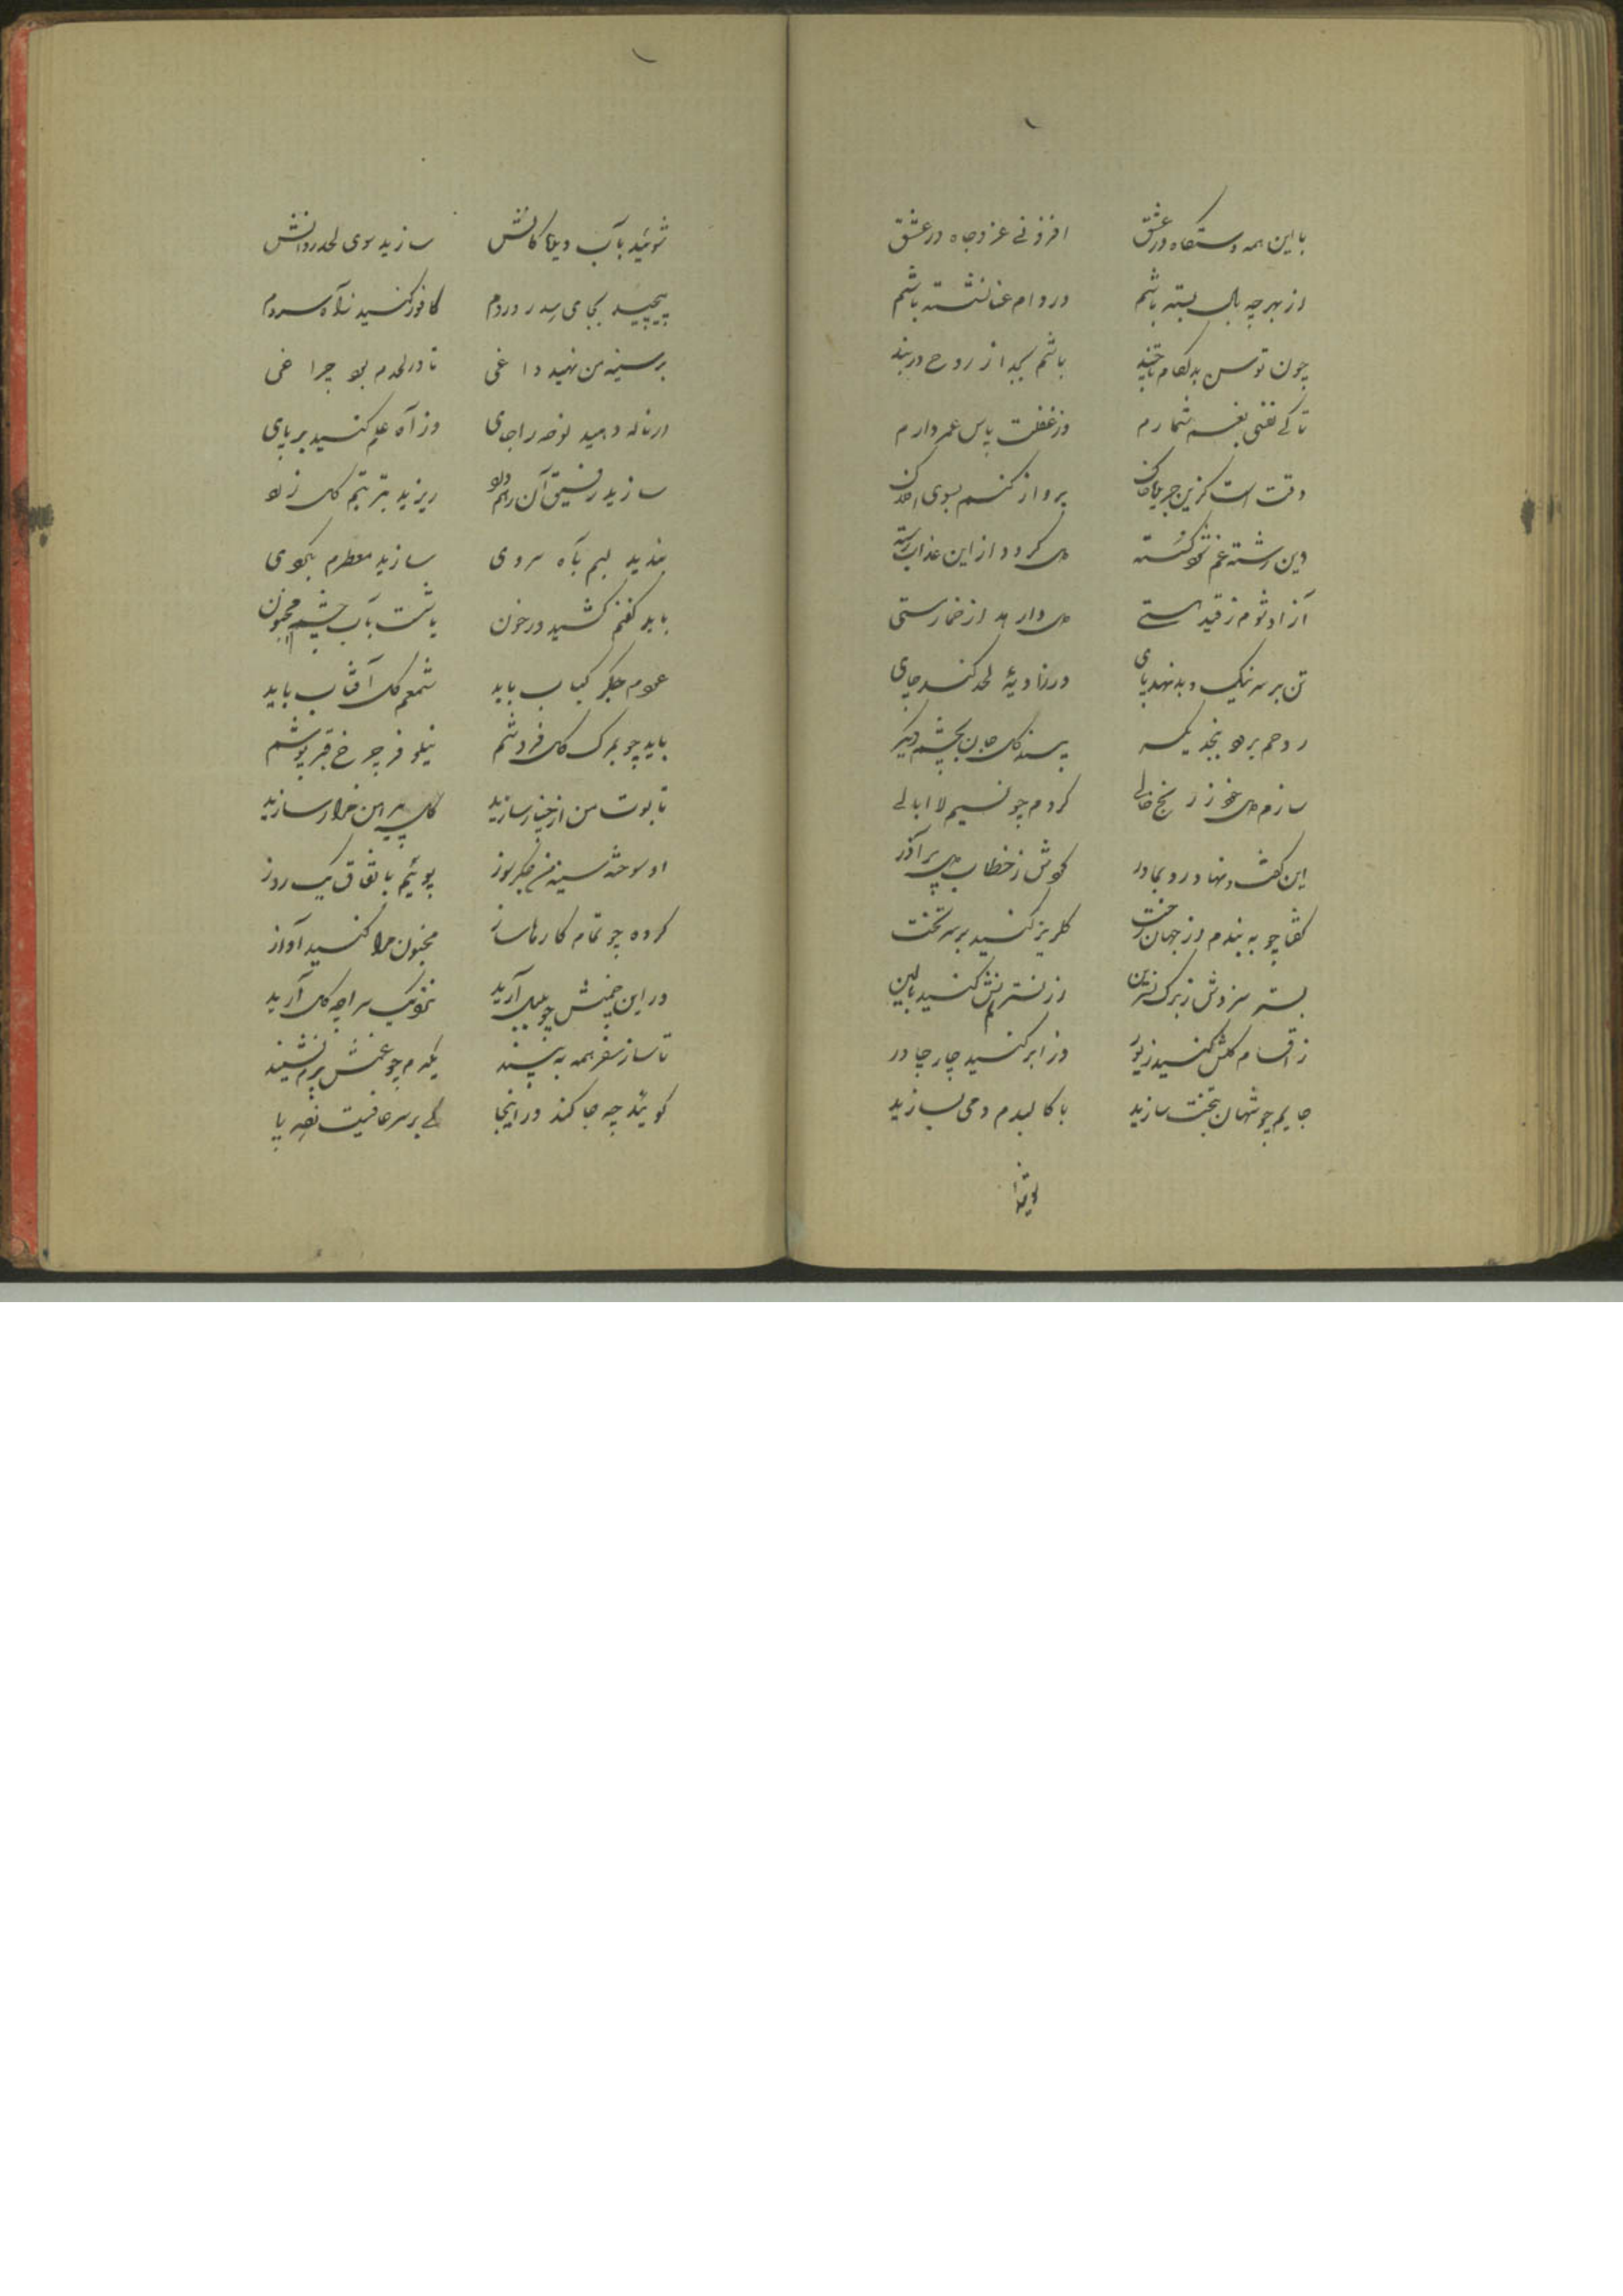 با این همه دستگاه در عشق افزونی عز و جاه در عشق
از بهر چه بال بسته باشم در دام عنا نشسته باشم
چون توسن بد لکام تا چند باشم بجد از روح در بند
تا کی نفسی بغم شمارم وز غفلت پاس عمر دارم
وقت است کزین پرواز کنم بسوی
وین رشته غم شود کسسته دل کردد از این عذاب رسته
آزاد شوم ز قید هستی دل وارهد از خمار مستی
تن بر سر نیک و بد نهد پای در زاویهٔ لحد کند جای
روحم برهد پسند کل جان بچشم دیکر
سازم دل خود ز رنج خالی کردم چو نسیم لاابالی
این کفت و نهاد رو بمادر کوش ز خطاب دل پر آذر
کفتا چو به بندم از جهان رخت کلریز کنید بر سر تخت
بستر سزدش ز برک نسرین از نسترنش کنید بالین
ز اقسام کلش کنید زیور وز ابر کنید چار چادر
جایم چو شهان بتخت سازید با کالبدم دمی بسازید
شوئید
شوئید بآب دیده کانش سازید سوی لحد روانش
پیچید بجای سدر دردم کافور کنید ز آه سردم
بر سینه من نهید داغی تا در لحدم بود چراغی
در ناله دهید نوحه را جای وز آه علم کنید بر پای
سازید رفیق آن ریزید بتربتم کل
بندید لبم بآه سردی سازید معطرم بکردی
باید کفنم کشید در خون با شست بآب چشم مجنون
عودم جکر کباب باید شمعم کل آفتاب باید
باید چو بمرک کل فروشم نیلوفر چرخ قبر پوشم
تابوت من از خیار سازید کل پیرهن مزار سازید
او سوخته سینه من جکر سوز پوئیم باتفاق یک روز
کرده چو تمام کارها ساز مجنون مرا کنید آواز
در این چمنش چو بلبل آرید نزدیک سراچه کل آرید
تا ساز سفر همه به بیند یکدم چو غمش برم نشیند
کوئید چه جا کند در اینجا کی بر سر عافیت نهد پا